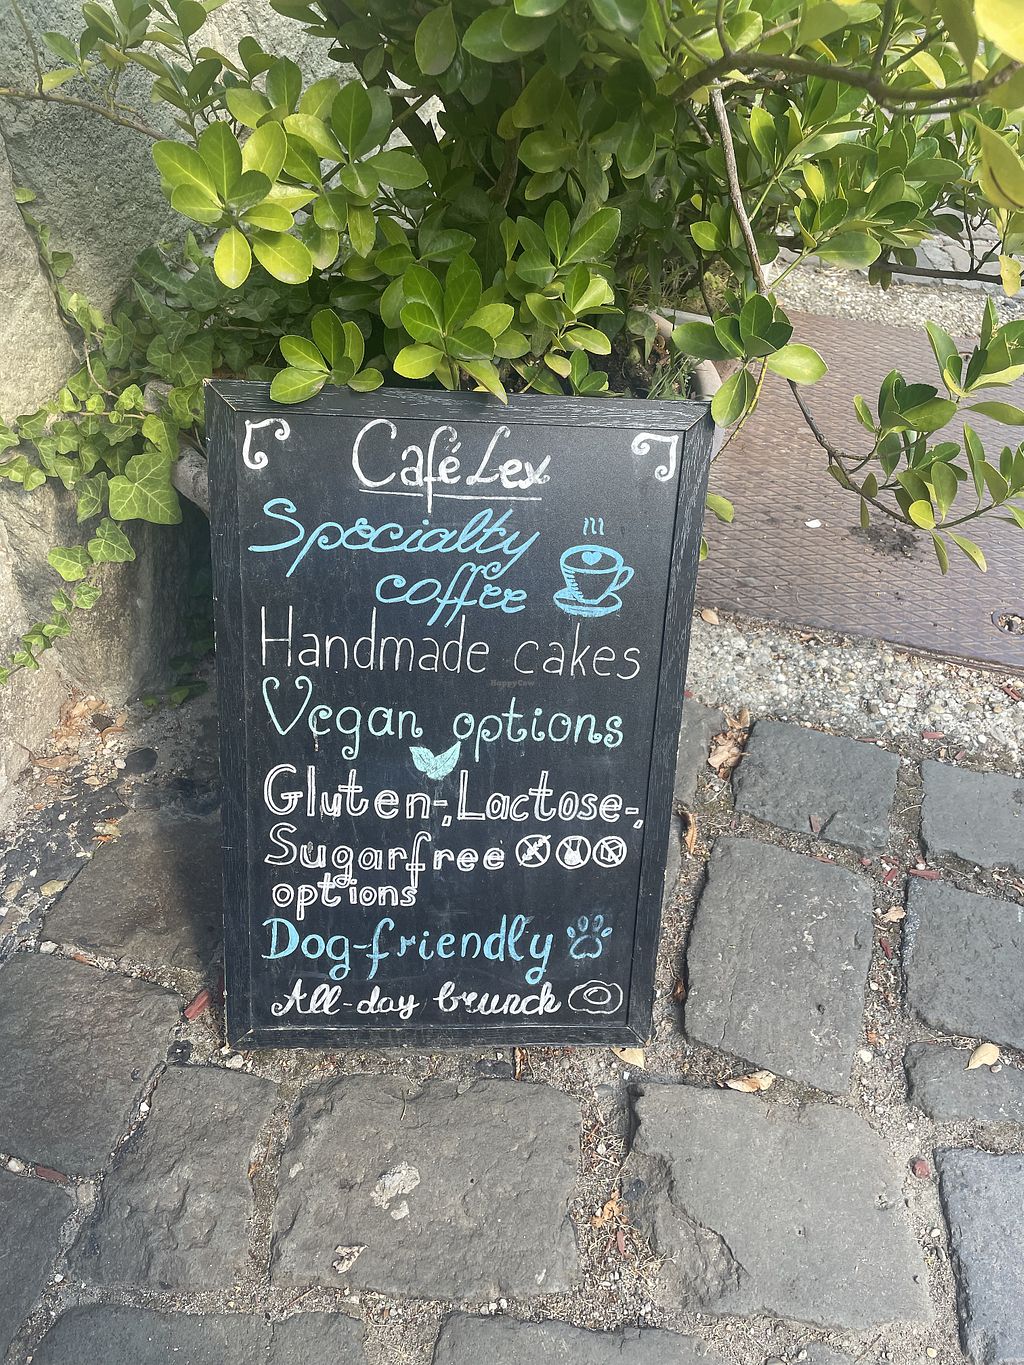 Café Lex
Specialty
coffee
Handmade cakes
HappyCow
Vegan options
Gluten-, Lactose-,
Sugarfree
options
Dog-friendly
All-day brunch